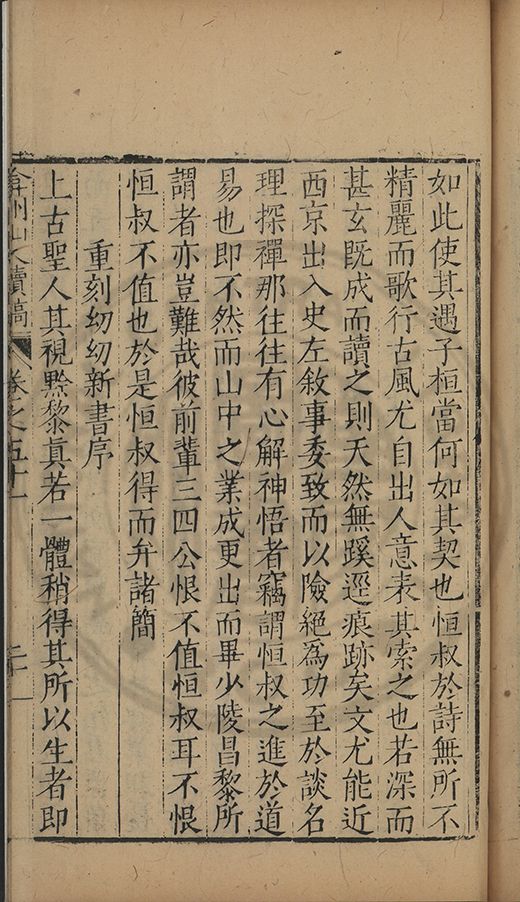 如此使其遇子桓當何如其契也恒叔於詩無所不
精麗而歌行古風尤自出人意表其索之也若深而
甚玄既成而讀之則天然無蹊逕痕跡矣文尤能近
西京出入史左敘事委致而以險絕為功至於談名
理探禪那往往有心解神悟者竊謂恒叔之進於道
易也即不然而山中之業成更出而畢少陵昌黎所
謂者亦豈難哉彼前輩三四公恨不值恒叔耳不恨
恒叔不值也於是恒叔得而弁諸簡
重刻幼幼新書序
上古聖人其視黔黎真若一體稍得其所以生者即
弇州山人續稿 卷之五十一